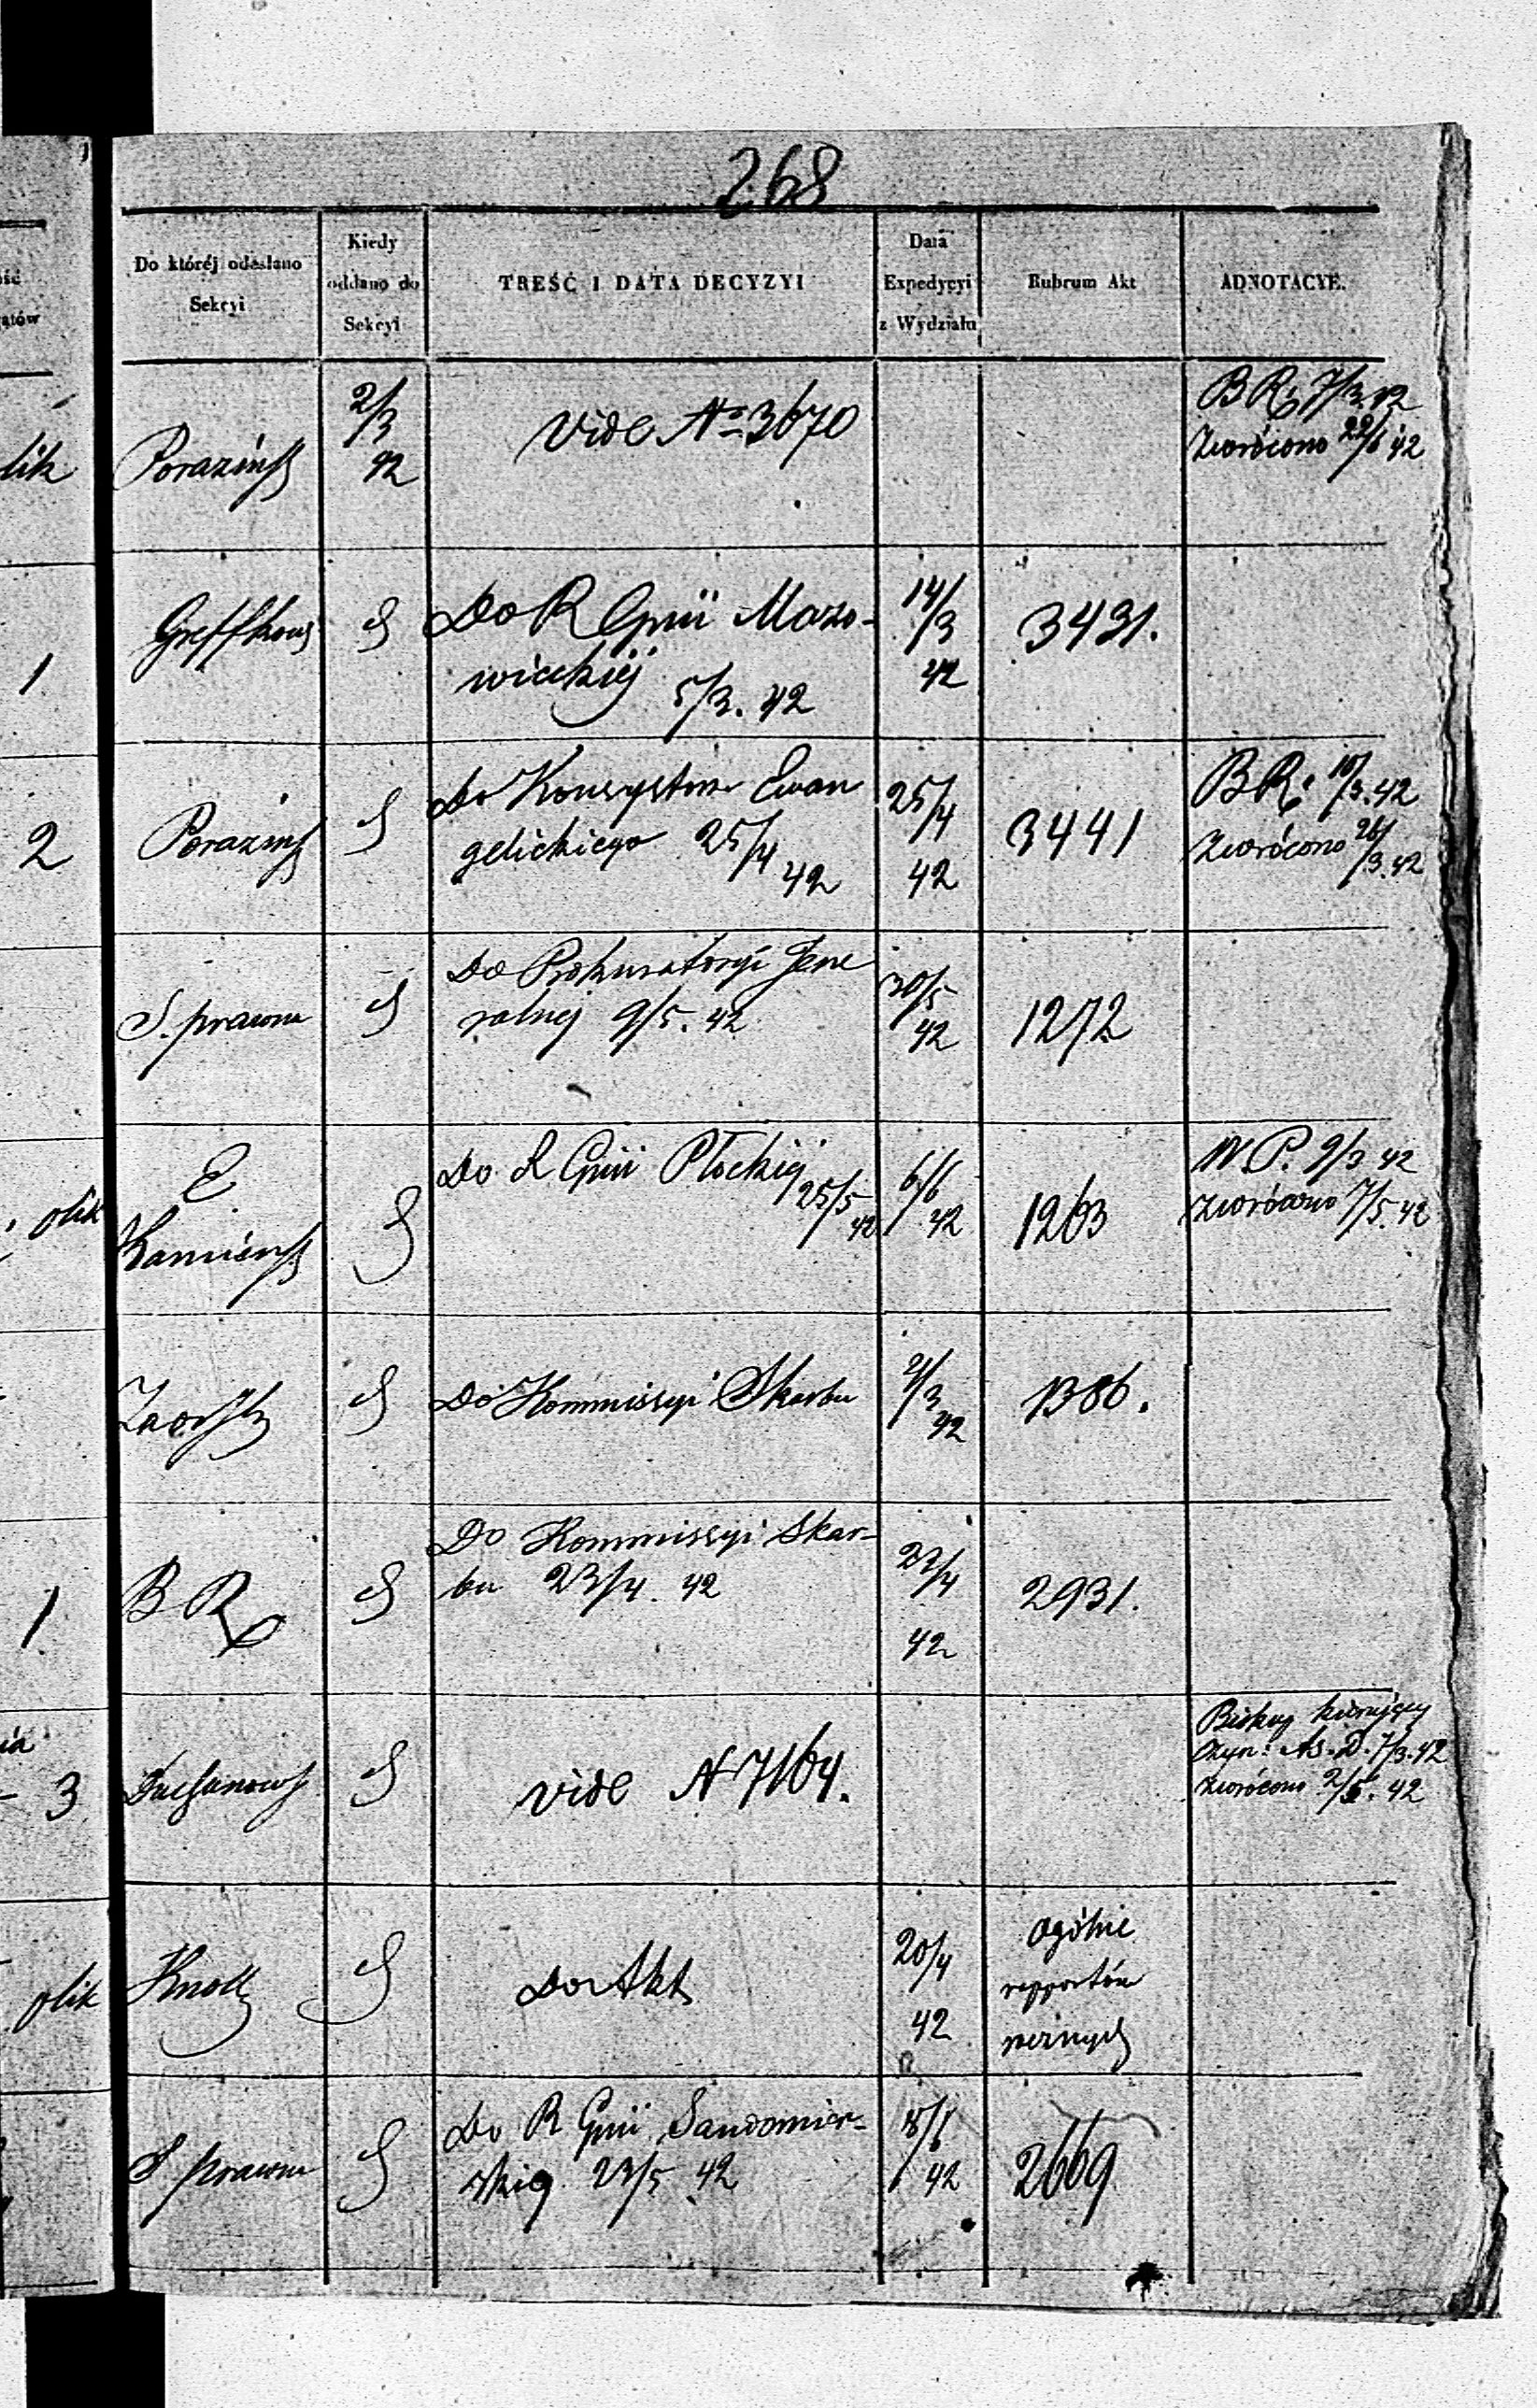 268
Do któréj odesłano
Sekcyi
Kiedy
oddano do
Sekcyi
TREŚĆ I DATA DECYZYI
Data
Expedycyi
z Wydziału
Rubrum Akt
ADNOTACYE.
Porazińs
2/3
42
Vide No 3670
BR. 7/3 42
Zwrócono 22/6 42
Do R Gnii Mazo-
wieckiéj
5/3. 42
14/3
42
3431.
Porazińs
do Konsystorza Ewan
gelickiego 25/4
42
25/4
42
3441
BR. 10/3. 42
Zwrócono 26/
3. 42
S. prawna
Do Prokuratoryi Jene
ralnej 9/5. 42
30/5
42
1272
E
Kamieńs
Do R Gnii Płockiéj
25/5
42
6/6
42
1263
W. P. 9/3 42
Zwrócono 7/5. 42
Do Kommissyi Skarbu
2/3
42
1386.
BR
Do Kommissyi Skar-
bu 23/4. 42
23/4
42
2931.
vide N 7164.
Biskup kierujący
Czyn: 7/3. 42
Zwrócono 2/5. 42
Knoll
Do Akt
20/4
42
Ogólnie
rapportów
S prawna
Do R Gnii Sandomier-
skiej 23/5 42
42
2669
olik
1
2
olik
1
3
olik